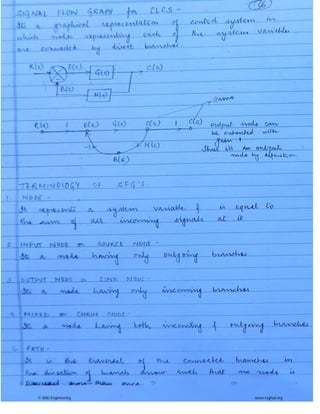 SIGNAL FLOW GRAPH for CLCS -
It's a graphical representation of control system in
which nodes representing each of the system variables
are connected by direct branches
R(s) E(s) G(s) C(s)
B(s) H(s)
Same
R(s) 1 E(s) G(s) C(s) 1 C(s)
-1 H(s)
B(s)
Output node can
be extended with
gain 1
node by definition
TERMINOLOGY OF SFG'S
1. NODE -
It represents a system variable & is equal to
the sum of all incoming signals at it
2. INPUT NODE or SOURCE NODE -
It's a node having only outgoing branches
3. OUTPUT NODE or SINK NODE -
It's a node having only incoming branches
4. MIXED or CHAIN NODE -
It's a node having both incoming & outgoing branches
5. PATH -
It is the traversal of the connected branches in
the direction of branch arrow such that no node is
traversed more than once.
© Wiki Engineering
www.raghul.org